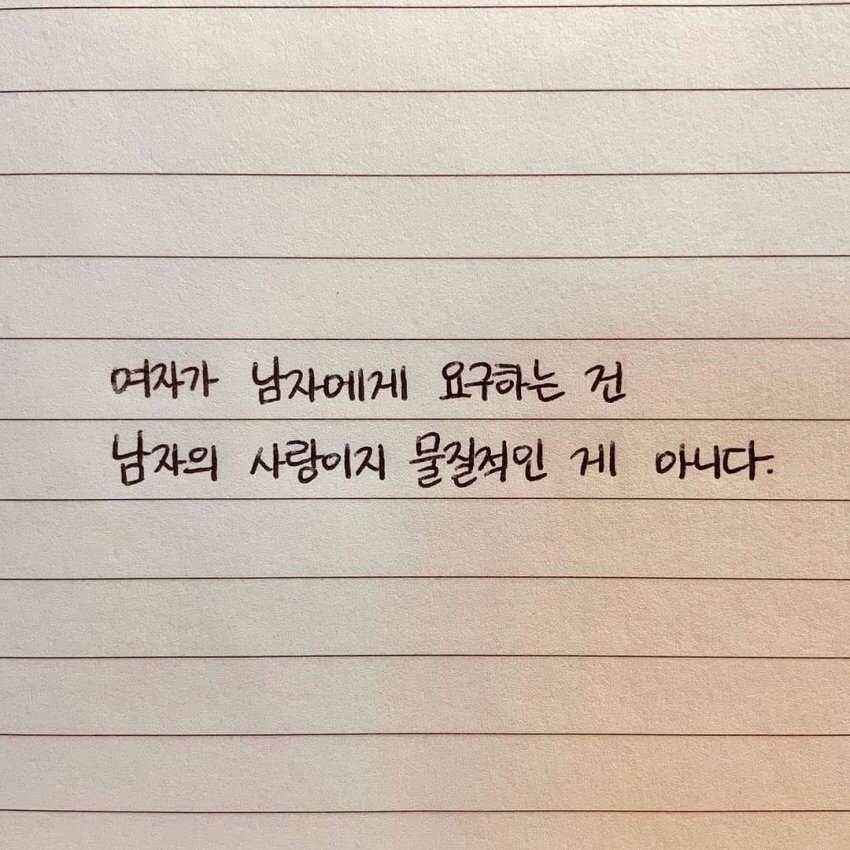 여자가 남자에게 요구하는 건
남자의 사랑이지 물질적인 게 아니다.